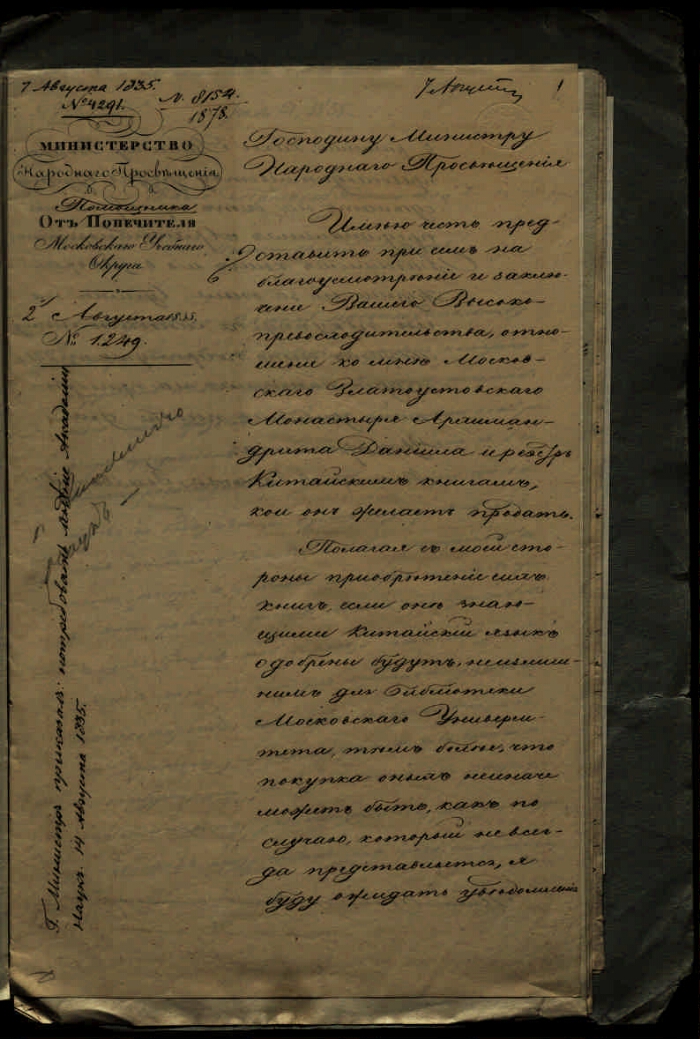 7 Августа 1835.
№ 4291.
N. 8154.
1878.
7 Августа
1
МИНИСТЕРСТВО
Народнаго Просвѣщенія
Помощника
Отъ Попечителя
Московскаго Учебнаго
Округа
2 Августа 1835.
№ 1249.
Господину Министру
Народнаго Просвѣщенія
Имѣю честь пред-
ставить при семъ на
благоусмотрѣніе и заклю-
ченіе Вашего Высоко-
превосходительства, отно-
шеніе ко мнѣ Москов-
скаго Златоустовскаго
Монастыря Архиман-
дрита Даніила и реестръ
Китайскимъ книгамъ,
кои онъ желаетъ продать.
Полагая съ моей сто-
роны пріобрѣтеніе сихъ
книгъ, если онѣ знаю-
щими Китайскій языкъ
одобрены будутъ, неизлиш-
нимъ для библіотеки
Московскаго Универси-
тета, тѣмъ болѣе, что
покупка оныхъ неиначе
можетъ быть, какъ по
случаю, который не всег-
да представляется, я
буду ожидать увѣдомленія
Г. Министръ приказалъ: потребовать мнѣніе Академіи
Наукъ. 14 Августа 1835.